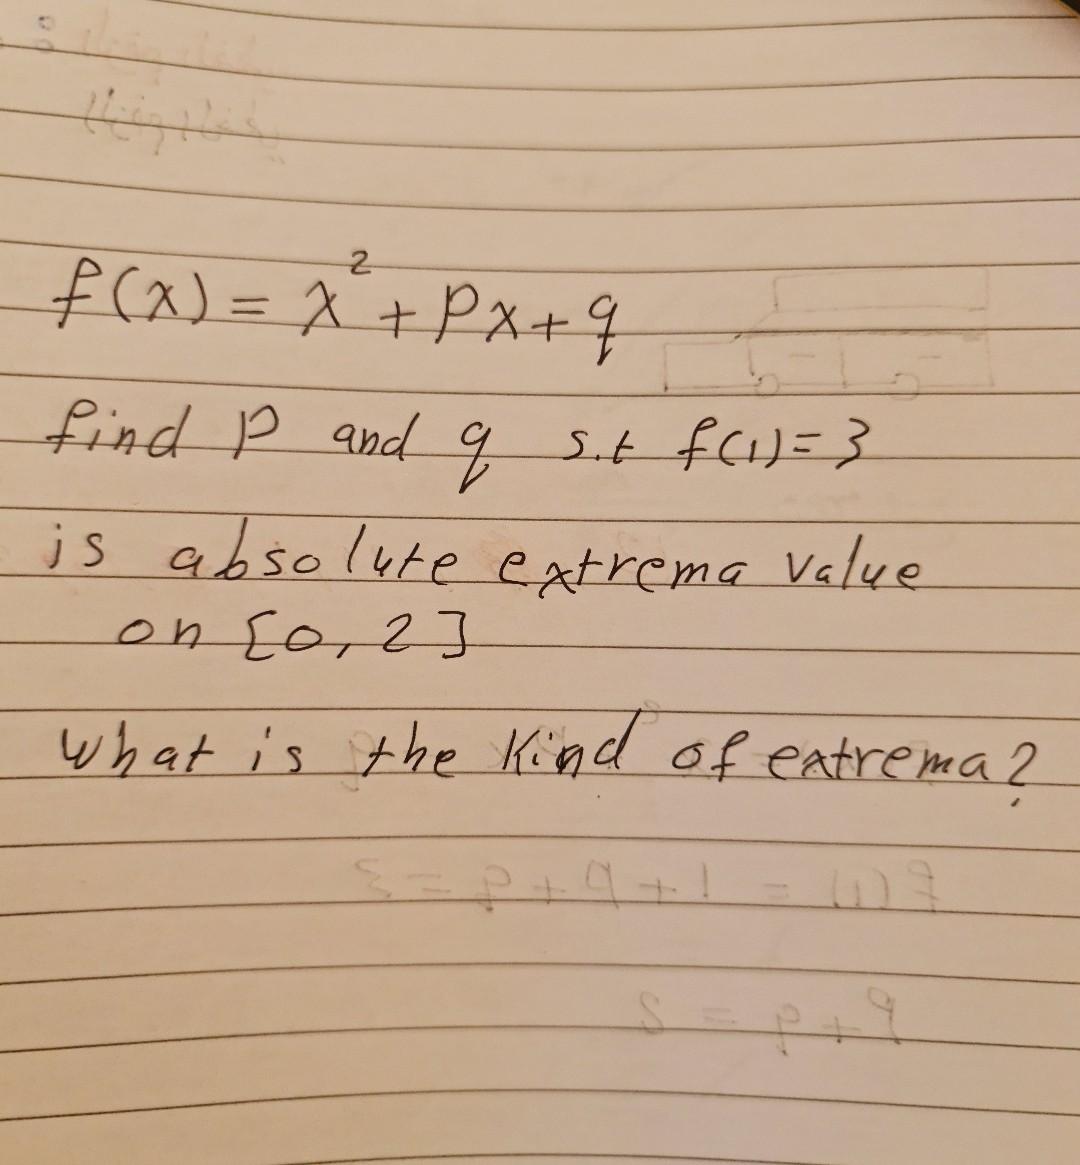 f(x) = x² + Px + q
find P and q s.t f(1) = 3
is absolute extrema value
on [0, 2]
What is the kind of extrema?
f(1) = 1 + P + q = 3
P + q = 2